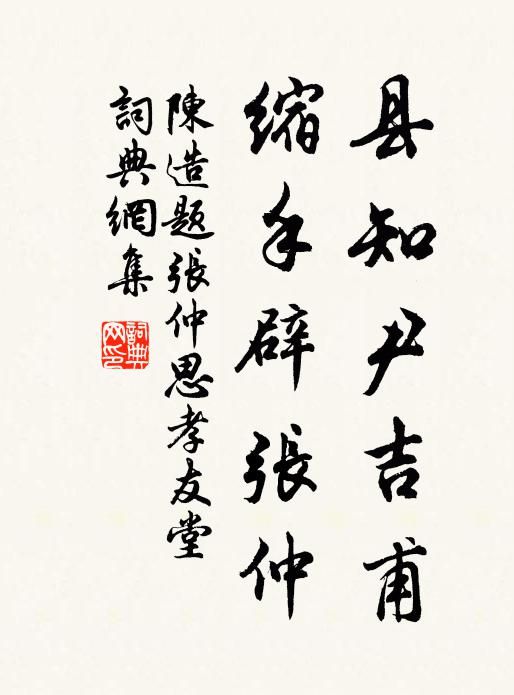 县知尹吉甫
缩手辟張仲
陳造题張仲思孝友堂
詞典網集
詞典网印